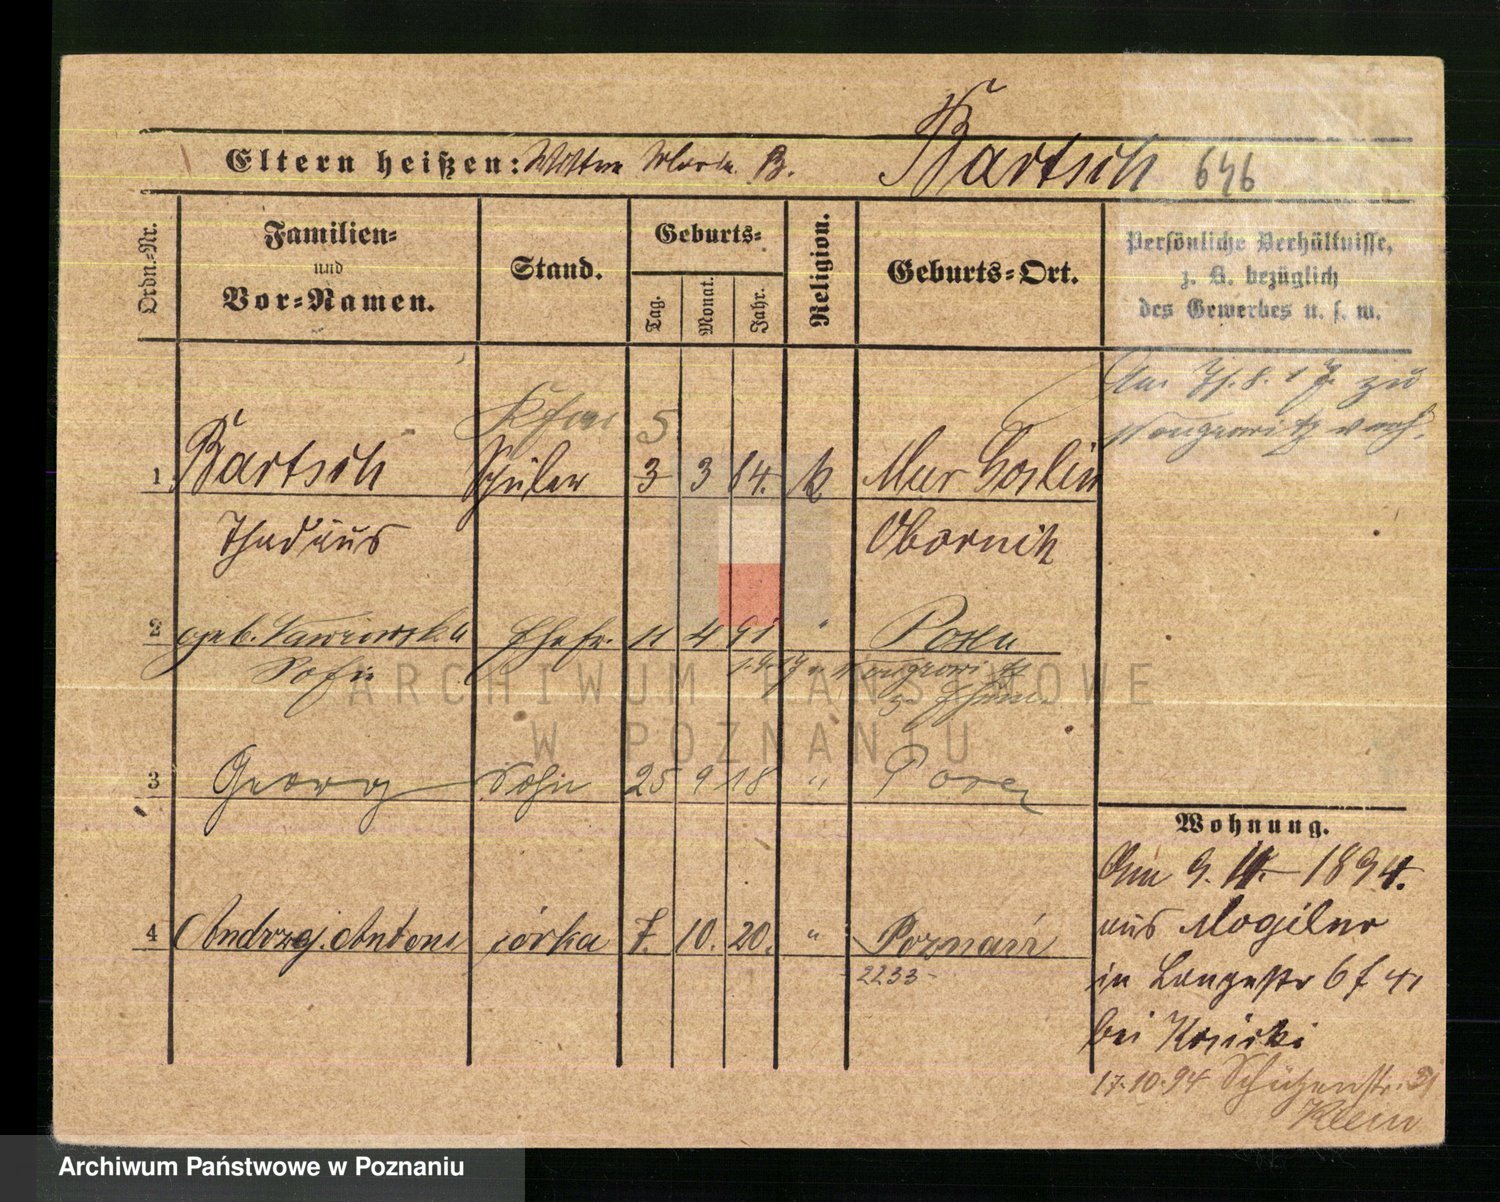 Bartsch 646
Eltern heißen: Wittwe Maria B.
Ordn.-Nr.
Familien-
und
Vor-Namen.
Stand.
Geburts-
Tag. Monat. Jahr.
Religion.
Geburts-Ort.
Persönliche Verhältnisse,
z. B. bezüglich
des Gewerbes u. s. w.
zu
Wongrowitz verh.
5
1 Bartsch Schüler 3 3 84. k Mur Goslin
Thadäus Obornik
2 geb. Ehefr. 11 4 91 " Posen
Sofie Wongrowitz
3 Georg Sohn 25 9 18 " Posen
4 Andrzej Antoni córka 7. 10. 20. " Poznań
2233
Wohnung.
Am 9. 1894.
aus Mogilno
in Langestr 6
bei
17.10.94 Schützenstr. 31
Klein
ARCHIWUM PAŃSTWOWE
W POZNANIU
Archiwum Państwowe w Poznaniu